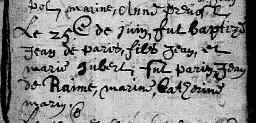 pol, marine, Anne prevost
Le 25e de juin, fut baptizé
Jean de paris, filz Jean, et
marie Jubert, fut parin, Jean
de Raime, marine Catherine
marin